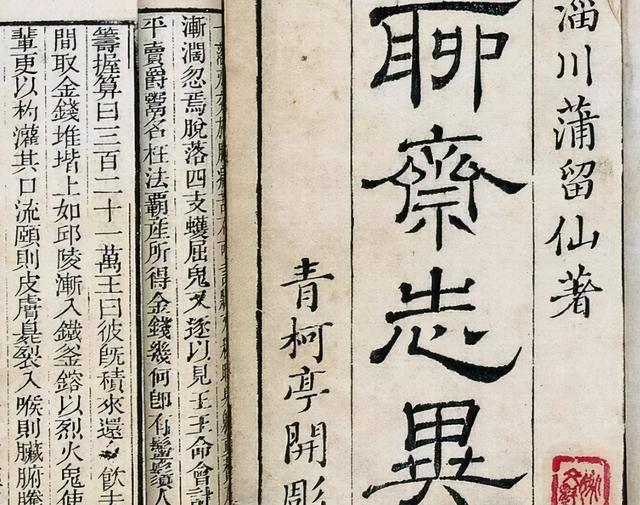 淄川蒲留仙著
聊齋志異
青柯亭開彫
漸濶忽焉脫落四支蠖屈鬼又逐以見王王命會計
平賣爵鬻名枉法霸產所得金錢幾何卽有鬡鬚人
籌握算曰三百二十一萬王曰彼旣積來還令飲去
間取金錢堆堦上如邱陵漸入鐵釜鎔以烈火鬼使
輩更以杓灌其口流頤則皮膚臭裂入喉則臟腑騰